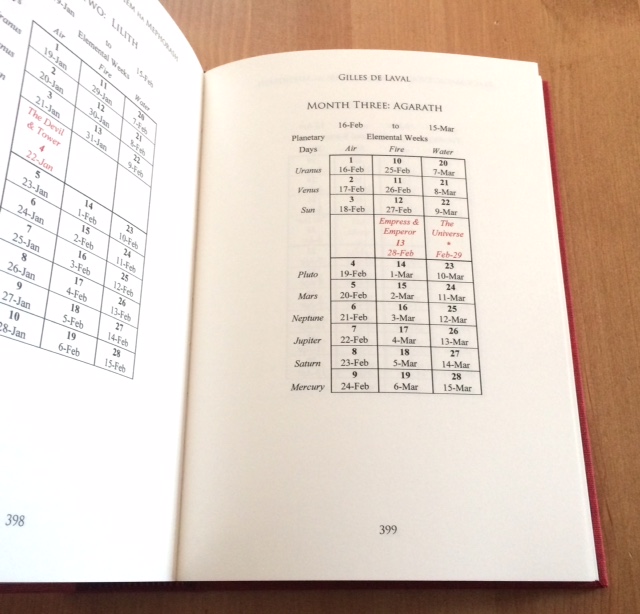 WO: LILITH
9-Jan to 15-Feb
Elemental Weeks
Days Air Fire Water
Uranus 1 11 20
19-Jan 29-Jan 7-Feb
Venus 2 12 21
20-Jan 30-Jan 8-Feb
3 13 22
21-Jan 31-Jan 9-Feb
The Devil
& Tower
4
22-Jan
5 14 23
23-Jan 1-Feb 10-Feb
6 15 24
24-Jan 2-Feb 11-Feb
7 16 25
25-Jan 3-Feb 12-Feb
8 17 26
26-Jan 4-Feb 13-Feb
9 18 27
27-Jan 5-Feb 14-Feb
10 19 28
28-Jan 6-Feb 15-Feb
398
GILLES DE LAVAL
MONTH THREE: AGARATH
16-Feb to 15-Mar
Planetary Elemental Weeks
Days Air Fire Water
1 10 20
Uranus 16-Feb 25-Feb 7-Mar
2 11 21
Venus 17-Feb 26-Feb 8-Mar
3 12 22
Sun 18-Feb 27-Feb 9-Mar
Empress & The
Emperor Universe
13 *
28-Feb Feb-29
4 14 23
Pluto 19-Feb 1-Mar 10-Mar
5 15 24
Mars 20-Feb 2-Mar 11-Mar
6 16 25
Neptune 21-Feb 3-Mar 12-Mar
7 17 26
Jupiter 22-Feb 4-Mar 13-Mar
8 18 27
Saturn 23-Feb 5-Mar 14-Mar
9 19 28
Mercury 24-Feb 6-Mar 15-Mar
399